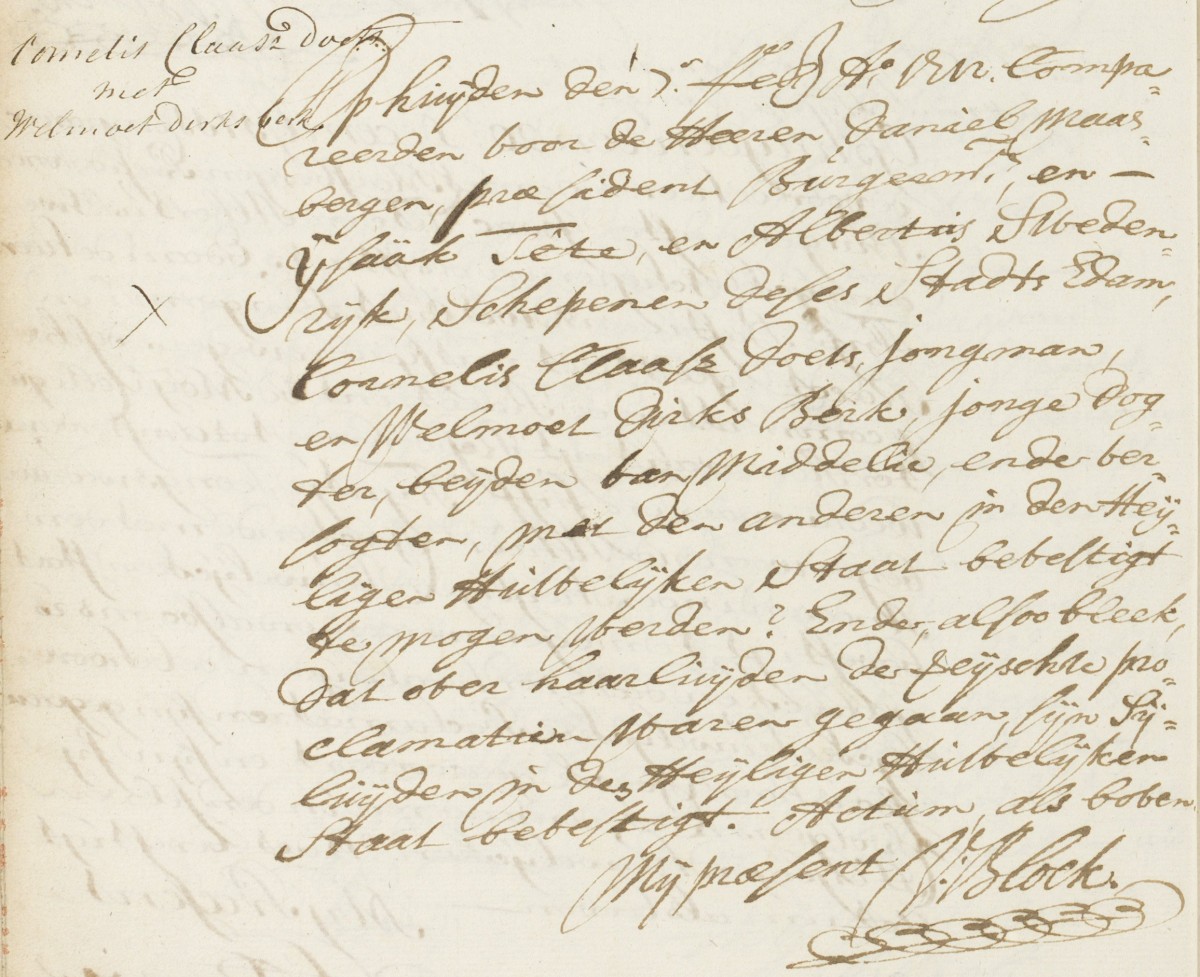 Cornelis Claasz Doets
met
Welmoet Dirks Berk
Op huijden den 7.en Feb A.o 1712. Compa=
reerden voor de Heeren, Daniel Maas=
bergen, præsident Burgerm.r, en —
Ysaäk Tête, en Albertus Sweden=
rijk, Schepenen deses Stadts Edam,
Cornelis Claasz Doets, jongman,
en Welmoet Dirks Berk, jonge dog=
ter, beijden van Middelie, ende ver=
sogten, met den anderen in den Heij=
ligen Huwelijken Staat bevestigt
te mogen werden? Ende, alsoo bleek,
dat over haarluijden de geijschte pro=
clamatien waren gegaan, sijn Sij=
luijden in den Heijligen Huwelijken
Staat bevestigt. Actum, als boven
Mij præsent J: Block.